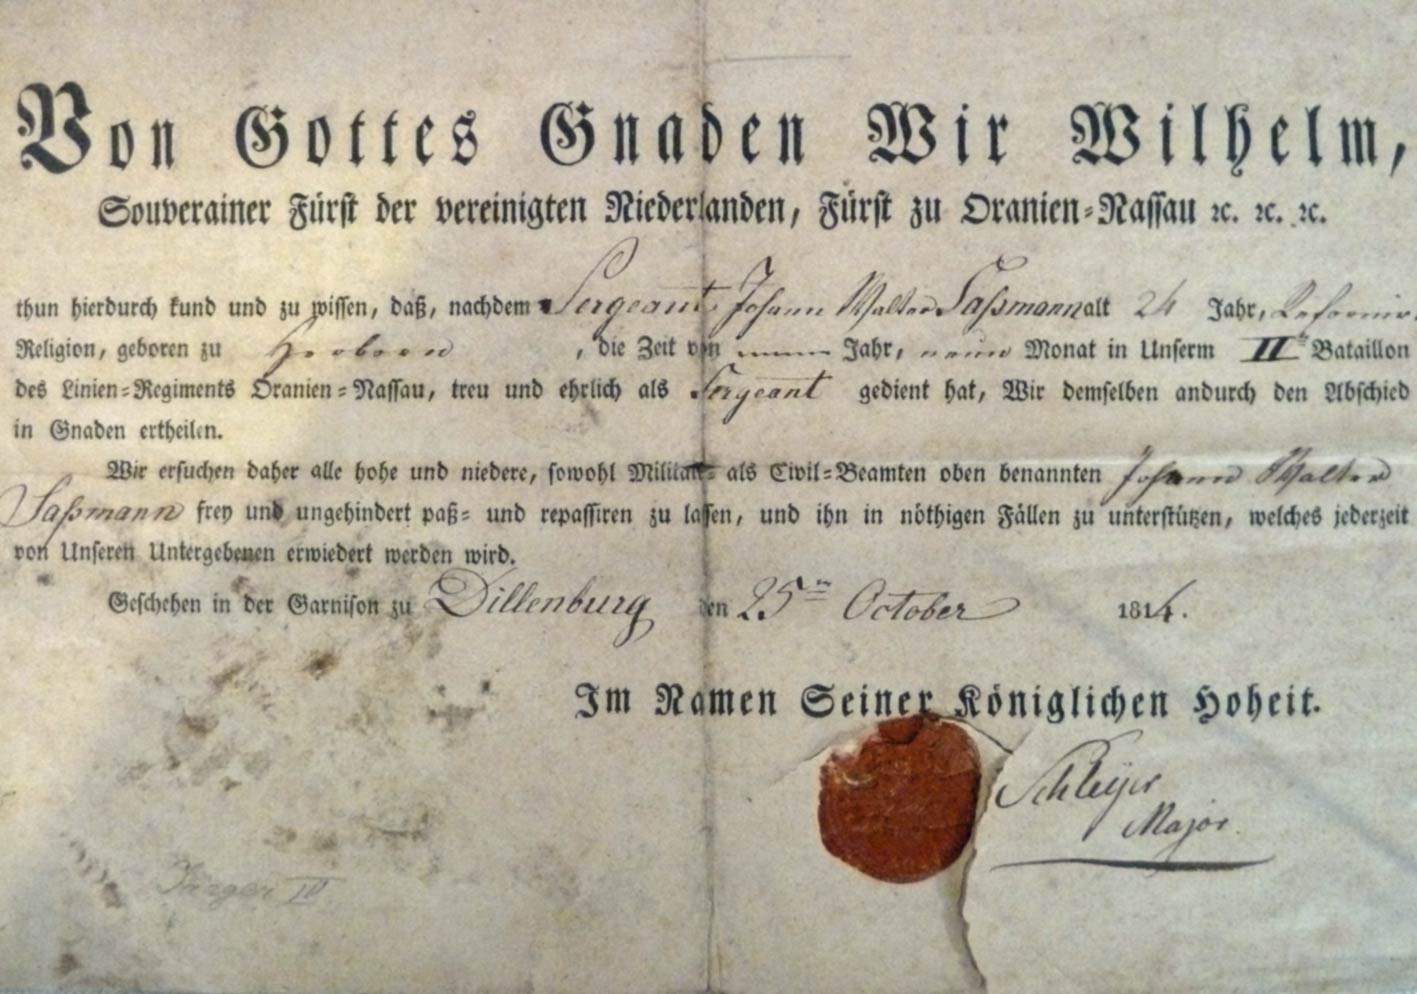 Von Gottes Gnaden Wir Wilhelm,
Souverainer Fürst der vereinigten Niederlanden, Fürst zu Oranien-Nassau ꝛc. ꝛc. ꝛc.
thun hierdurch kund und zu wissen, daß, nachdem Sergeant Johann Walter Saßmann alt 24 Jahr,
Religion, geboren zu Herborn, die Zeit von Jahr, neun Monat in Unserm II Bataillon
des Linien-Regiments Oranien-Nassau, treu und ehrlich als Sergeant gedient hat, Wir demselben andurch den Abschied
in Gnaden ertheilen.
Wir ersuchen daher alle hohe und niedere, sowohl Militair- als Civil-Beamten oben benannten Johann Walter
Saßmann frey und ungehindert paß- und repassiren zu lassen, und ihn in nöthigen Fällen zu unterstützen, welches jederzeit
von Unseren Untergebenen erwiedert werden wird.
Geschehen in der Garnison zu Dillenburg den 25ten October 1814.
Im Namen Seiner Königlichen Hoheit.
Schleyer
Major.
IV